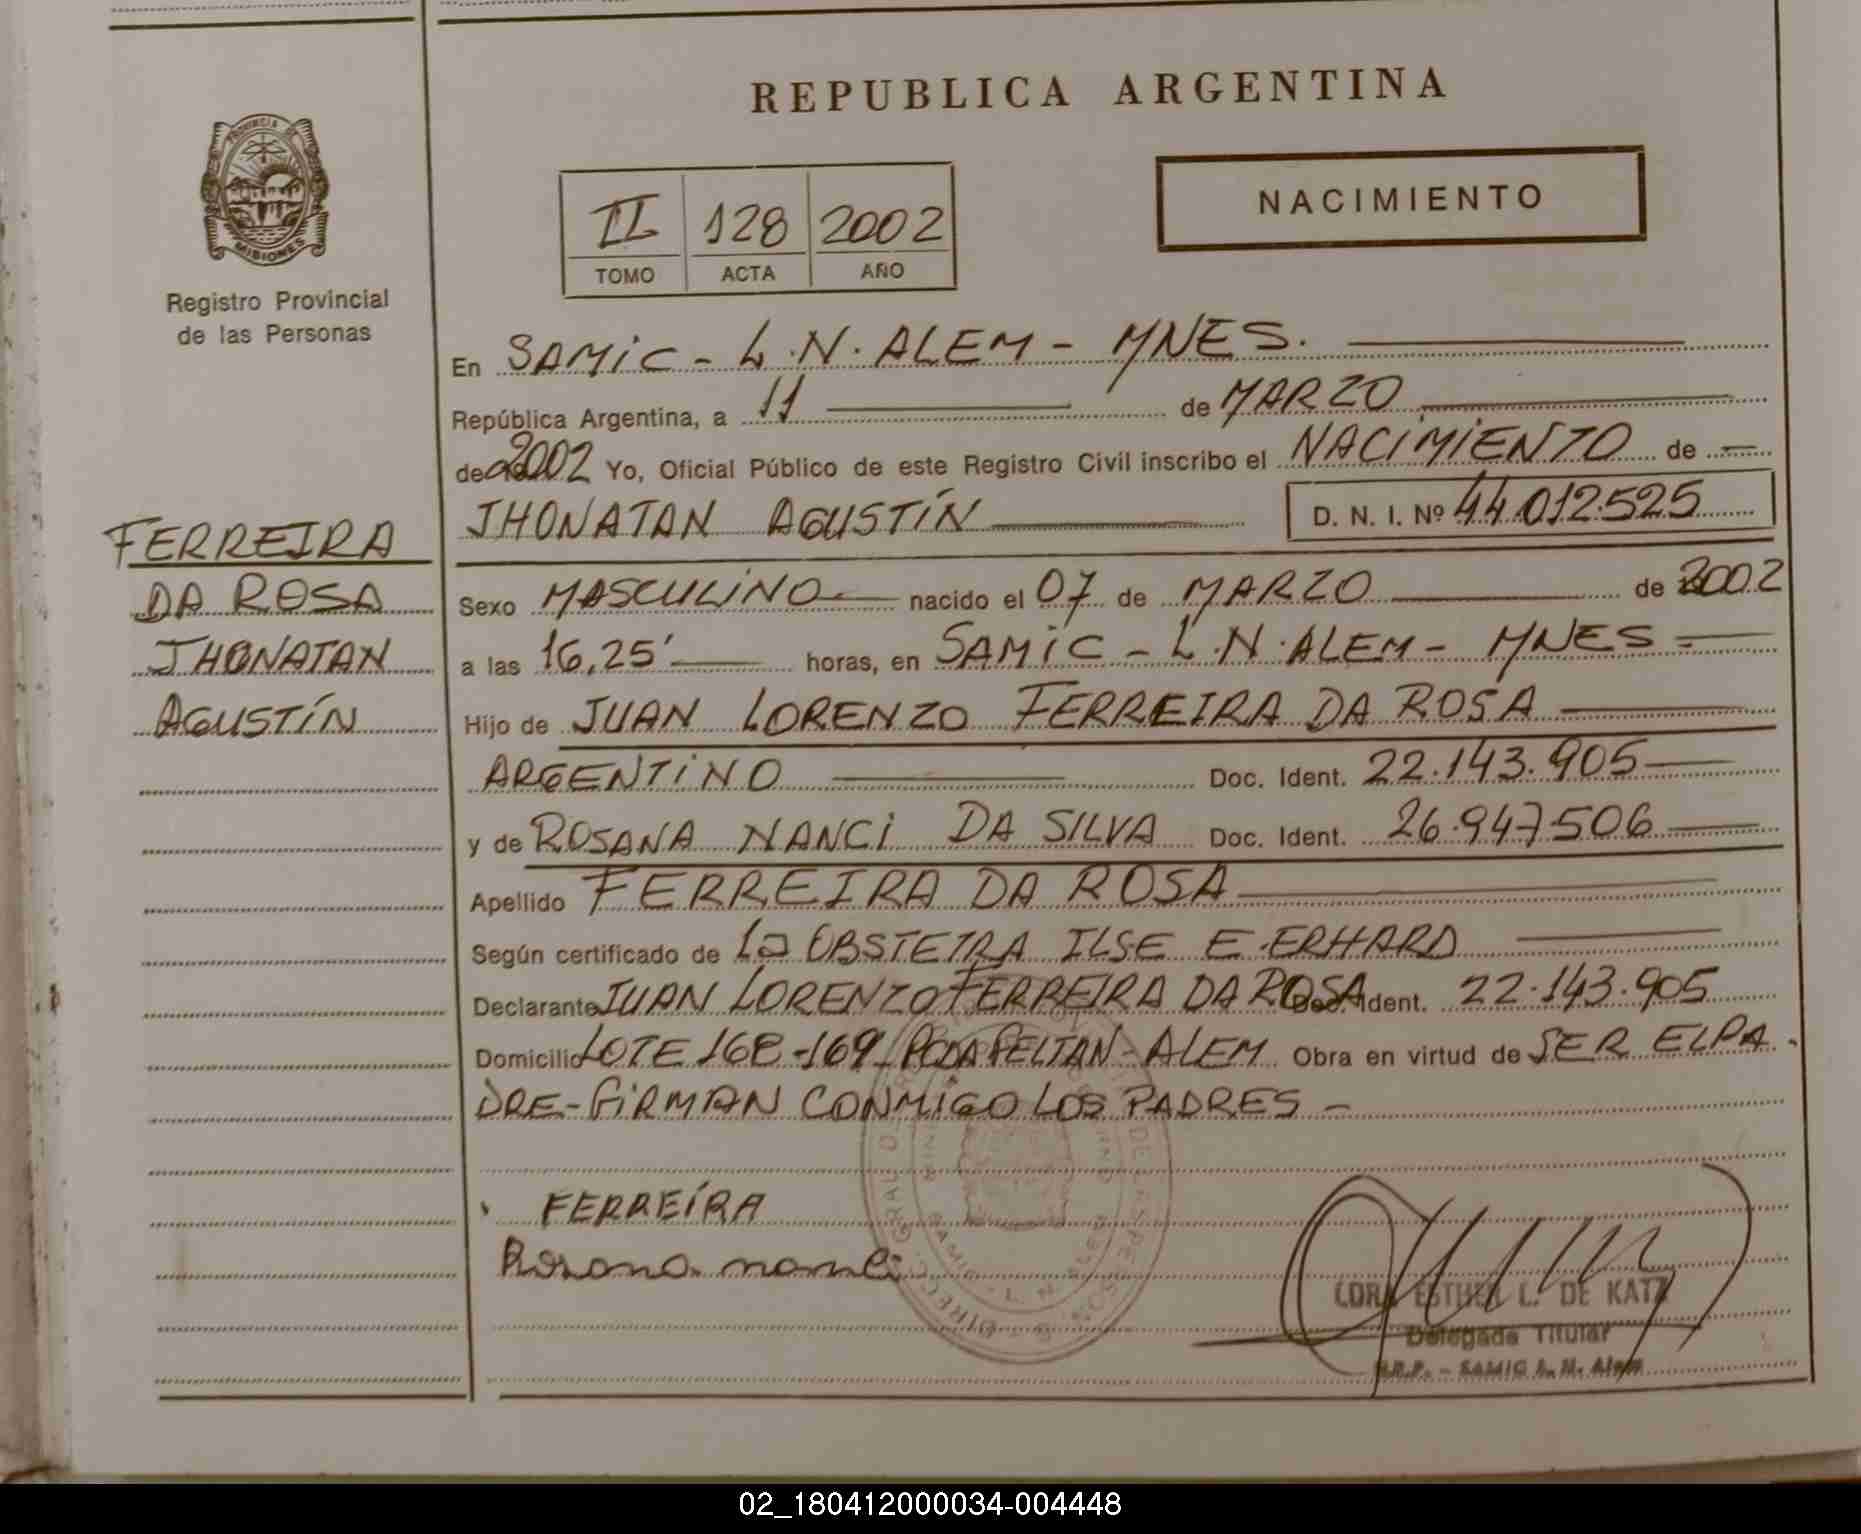 REPUBLICA ARGENTINA
PROVINCIA DE
MISIONES
Registro Provincial
de las Personas
NACIMIENTO
II 128 2002
TOMO ACTA AÑO
En SAMIC - L.N. ALEM - MNES.
República Argentina, a 11 de MARZO
de 2002 Yo, Oficial Público de este Registro Civil inscribo el NACIMIENTO de
JHONATAN AGUSTÍN D. N. I. Nº 44.012.525
FERREIRA
DA ROSA
JHONATAN
AGUSTÍN
Sexo MASCULINO nacido el 07 de MARZO de 2002
a las 16,25' horas, en SAMIC - L.N. ALEM - MNES -
Hijo de JUAN LORENZO FERREIRA DA ROSA
ARGENTINO Doc. Ident. 22.143.905
y de ROSANA NANCI DA SILVA Doc. Ident. 26.947.506
Apellido FERREIRA DA ROSA
Según certificado de la OBSTETRA ILSE E. ERHARD
Declarante JUAN LORENZO FERREIRA DA ROSA Doc. Ident. 22.143.905
Domicilio LOTE 168-169 - ALEM Obra en virtud de SER EL PA
DRE - FIRMAN CONMIGO LOS PADRES -
FERREÍRA
Rosana nanci
ESTHER L. DE KATZ
Delegada Titular
R.P.P. - SAMIC L. N. Alem
02_180412000034-004448